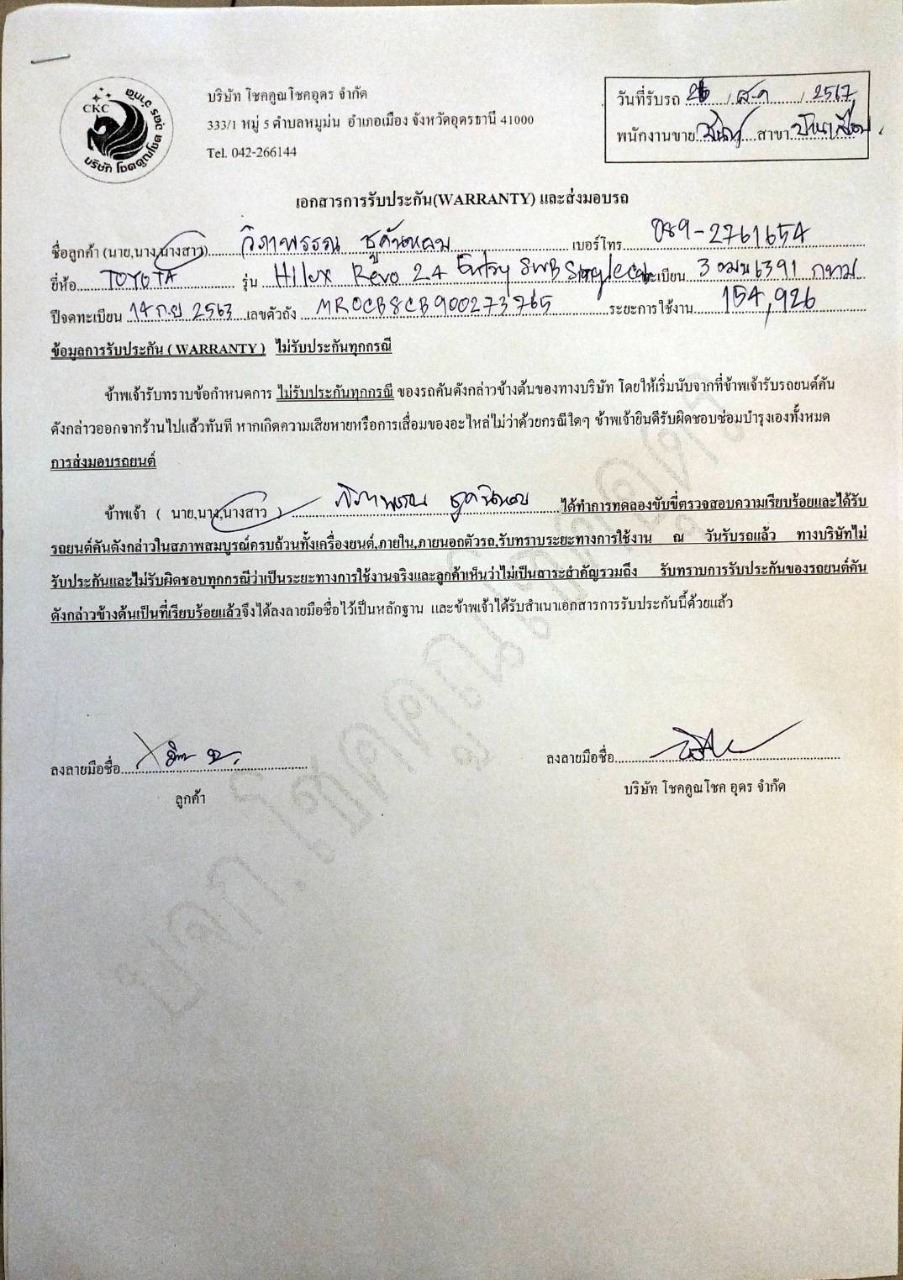 CKC
บริษัท โชคคูณโชค อุดร จำกัด
บริษัท โชคคูณโชคอุดร จำกัด
333/1 หมู่ 5 ตำบลหมูม่น อำเภอเมือง จังหวัดอุดรธานี 41000
Tel. 042-266144
วันที่รับรถ 26 / ส.ค / 2567
พนักงานขาย สาขา บ้านเลื่อม
เอกสารการรับประกัน(WARRANTY) และส่งมอบรถ
ชื่อลูกค้า (นาย,นาง,นางสาว) วิภาพรรณ เบอร์โทร 089-2761654
ยี่ห้อ TOYOTA รุ่น Hilux Revo 2.4 Entry SWB Single cab ทะเบียน 3 ฒฆ 6391 กทม
ปีจดทะเบียน 14 ก.ย 2563 เลขตัวถัง MR0CB8CB900273765 ระยะการใช้งาน 154,926
ข้อมูลการรับประกัน ( WARRANTY ) ไม่รับประกันทุกกรณี
ข้าพเจ้ารับทราบข้อกำหนดการ ไม่รับประกันทุกกรณี ของรถคันดังกล่าวข้างต้นของทางบริษัท โดยให้เริ่มนับจากที่ข้าพเจ้ารับรถยนต์คัน
ดังกล่าวออกจากร้านไปแล้วทันที หากเกิดความเสียหายหรือการเสื่อมของอะไหล่ไม่ว่าด้วยกรณีใดๆ ข้าพเจ้ายินดีรับผิดชอบซ่อมบำรุงเองทั้งหมด
การส่งมอบรถยนต์
ข้าพเจ้า ( นาย,นาง,นางสาว ) วิภาพรรณ ได้ทำการทดลองขับขี่ตรวจสอบความเรียบร้อยและได้รับ
รถยนต์คันดังกล่าวในสภาพสมบูรณ์ครบถ้วนทั้งเครื่องยนต์,ภายใน,ภายนอกตัวรถ,รับทราบระยะทางการใช้งาน ณ วันรับรถแล้ว ทางบริษัทไม่
รับประกันและไม่รับผิดชอบทุกกรณีว่าเป็นระยะทางการใช้งานจริงและลูกค้าเห็นว่าไม่เป็นสาระสำคัญรวมถึง รับทราบการรับประกันของรถยนต์คัน
ดังกล่าวข้างต้นเป็นที่เรียบร้อยแล้วจึงได้ลงลายมือชื่อไว้เป็นหลักฐาน และข้าพเจ้าได้รับสำเนาเอกสารการรับประกันนี้ด้วยแล้ว
บจก.โชคคูณโชคอุดร
ลงลายมือชื่อ
ลูกค้า
ลงลายมือชื่อ
บริษัท โชคคูณโชค อุดร จำกัด